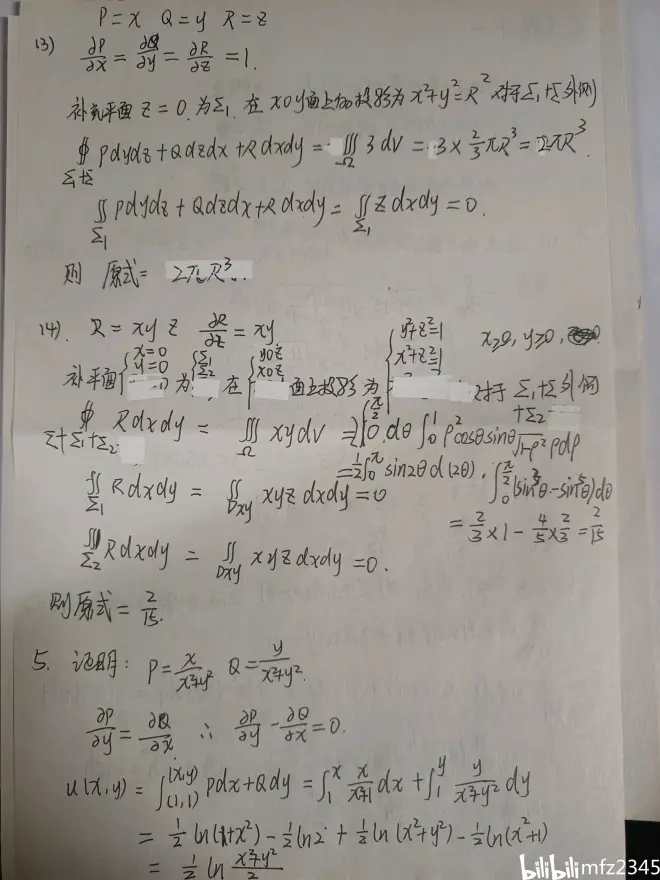 P=x Q=y R=z
(3) ∂P/∂x = ∂Q/∂y = ∂R/∂z = 1.
补充平面 z=0 为Σ₁ 在xoy面上的投影为 x²+y²=R² 对于Σ₁+Σ外侧
∯_{Σ₁+Σ} Pdydz+Qdzdx+Rdxdy = ∭_Ω 3dV = 3×2/3πR³ = 2πR³.
∬_{Σ₁} Pdydz+Qdzdx+Rdxdy = ∬_{Σ₁} zdxdy = 0.
则 原式= 2πR³.
(4). R=xyz ∂R/∂z = xy.
补平面 {x=0 y=0 为 {Σ₁ Σ₂ 在 {yoz xoz 面上投影为 {y²+z²=1 x²+z²=1 x≥0, y≥0, 对于 Σ₁+Σ外侧 +Σ₂
∯_{Σ+Σ₁+Σ₂} Rdxdy = ∭_Ω xydV = 2∫₀^{π/2} dθ ∫₀¹ ρ²cosθsinθ√(1-ρ²) ρdρ
= 1/2∫₀^π sin2θd(2θ) · ∫₀^{π/2} (sin³θ-sin⁵θ)dθ
∬_{Σ₁} Rdxdy = ∬_{Dxy} xyzdxdy = 0
= 2/3×1 - 4/5×2/3 = 2/15
∬_{Σ₂} Rdxdy = ∬_{Dxy} xyzdxdy = 0.
则原式 = 2/15.
5. 证明: P = x/(x²+y²) Q = y/(x²+y²).
∂P/∂y = ∂Q/∂x ∴ ∂P/∂y - ∂Q/∂x = 0.
u(x,y) = ∫_{(1,1)}^{(x,y)} Pdx+Qdy = ∫₁ˣ x/(x²+1) dx + ∫₁ʸ y/(x²+y²) dy
= 1/2 ln(1+x²) - 1/2 ln2 + 1/2 ln(x²+y²) - 1/2 ln(x²+1)
= 1/2 ln (x²+y²)/2
bilibili mfz2345